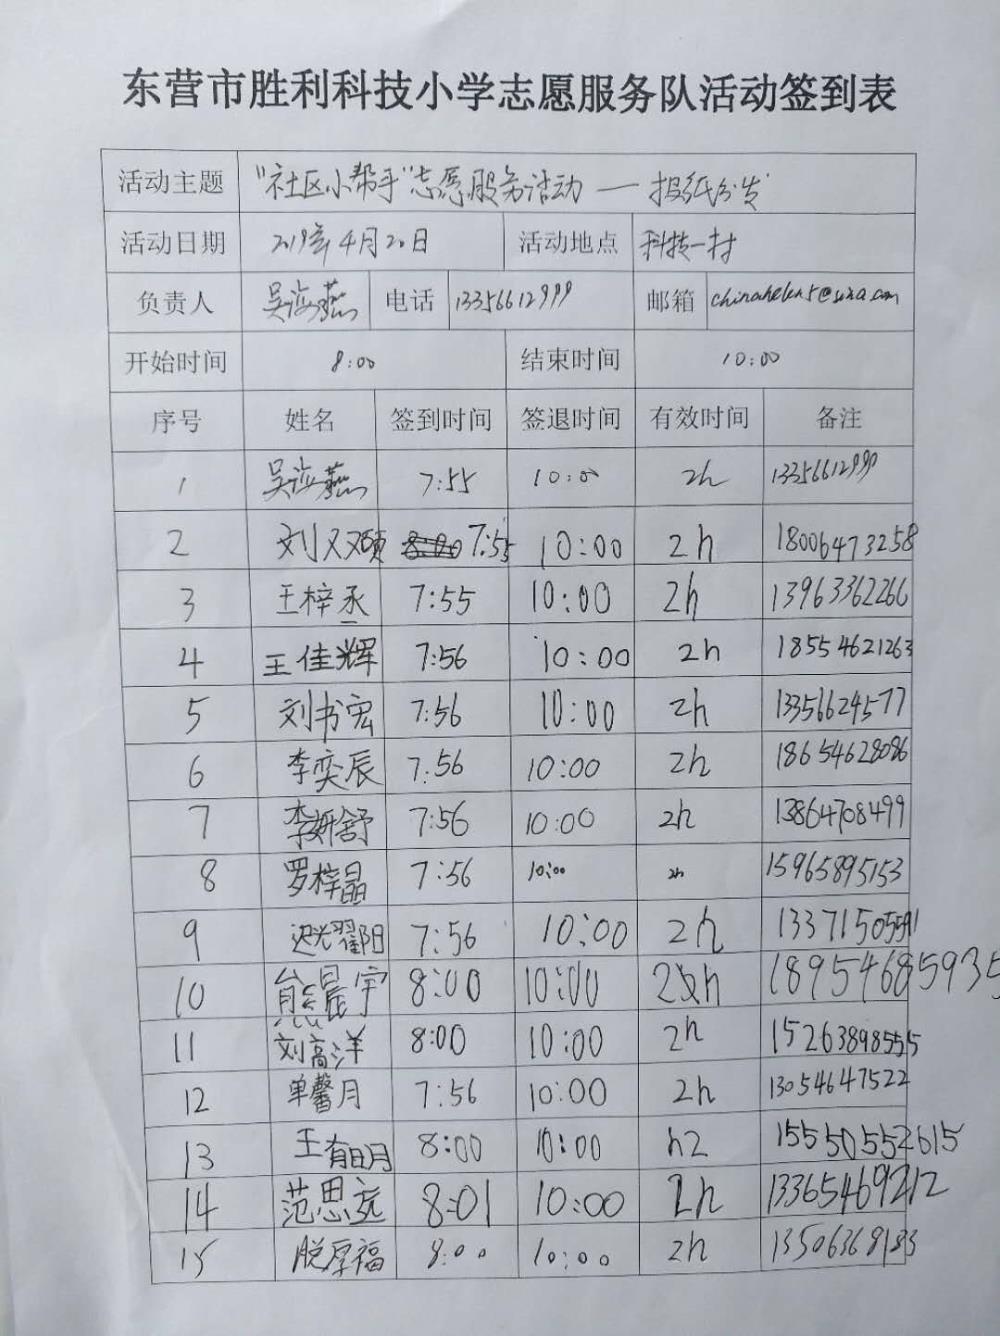 东营市胜利科技小学志愿服务队活动签到表
活动主题 "社区小帮手"志愿服务活动 — 报纸分发
活动日期 2019年4月20日 活动地点 科技一村
负责人 吴海燕 电话 13356612999 邮箱 chinahelen5@sina.com
开始时间 8:00 结束时间 10:00
序号 姓名 签到时间 签退时间 有效时间 备注
1 吴海燕 7:55 10:00 2h 13356612999
2 刘又硕 7:55 10:00 2h 18006473258
3 王梓丞 7:55 10:00 2h 13963362266
4 王佳辉 7:56 10:00 2h 18554621263
5 刘书宏 7:56 10:00 2h 13356624577
6 李奕辰 7:56 10:00 2h 18654628086
7 李妍舒 7:56 10:00 2h 13864708499
8 罗梓晶 7:56 10:00 2h 15965895153
9 迟耀阳 7:56 10:00 2h 13371505591
10 熊晨宇 8:00 10:00 2h 18954685935
11 刘高洋 8:00 10:00 2h 15263898555
12 单馨月 7:56 10:00 2h 13054647522
13 王有明 8:00 10:00 h2 15550552615
14 范思远 8:01 10:00 2h 13365469212
15 脱厚福 8:00 10:00 2h 13506368183